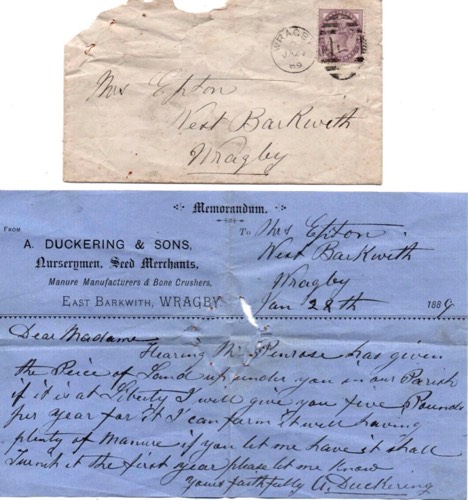 WRAGBY
JA
89
Mrs Epton
West Barkwith
Wragby
Memorandum.
FROM
To Mrs Epton
A. DUCKERING & SONS,
West Barkwith
Nurserymen, Seed Merchants,
Wragby
Manure Manufacturers & Bone Crushers,
EAST BARKWITH, WRAGBY
Jan 28th 1889
Dear Madame
Hearing Mr Penrose has given
the Peice of Land up under you in our Parish
if it is at Liberty I will give you five Pounds
per year for it I can farm it well having
plenty of Manure if you let me have it shall
it the first year please let me know
Yours faithfully A. Duckering